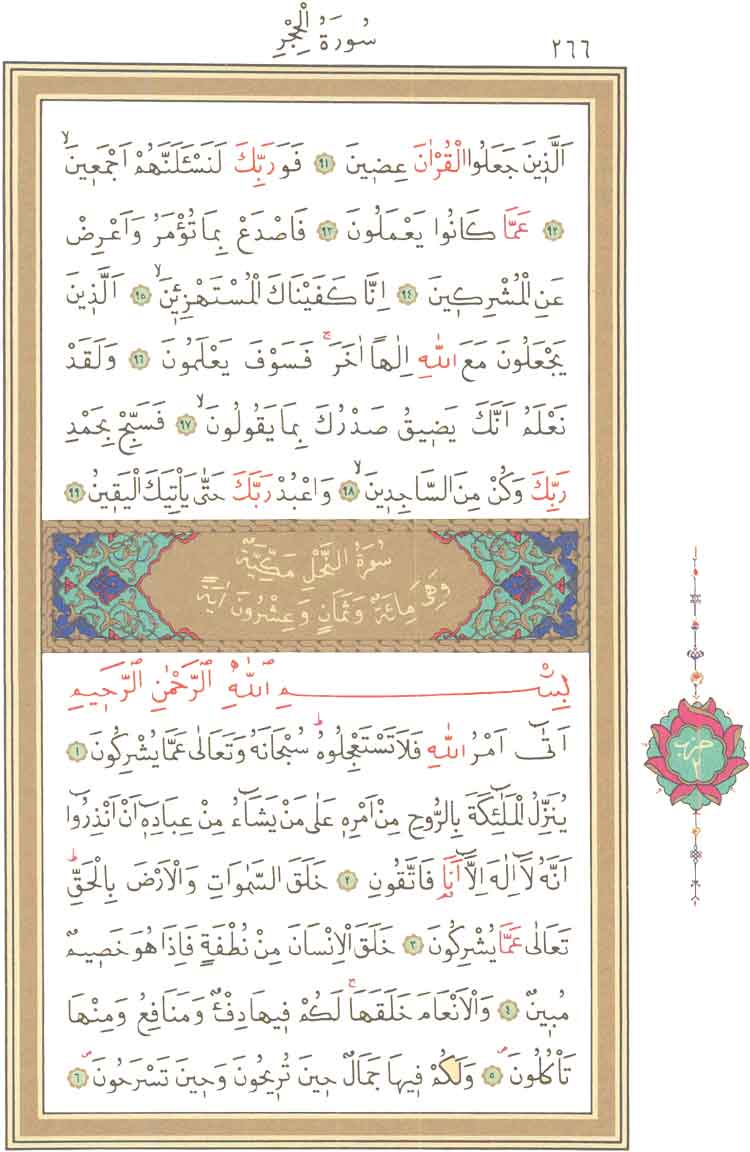 سُورَةُ الْحِجْرِ
٢٦٦
اَلَّذ۪ينَ جَعَلُوا الْقُرْاٰنَ عِض۪ينَ ٩١ فَوَرَبِّكَ لَنَسْـَٔلَنَّهُمْ اَجْمَع۪ينَۙ
٩٢ عَمَّا كَانُوا يَعْمَلُونَ ٩٣ فَاصْدَعْ بِمَا تُؤْمَرُ وَاَعْرِضْ
عَنِ الْمُشْرِك۪ينَ ٩٤ اِنَّا كَفَيْنَاكَ الْمُسْتَهْزِء۪ينَۙ ٩٥ اَلَّذ۪ينَ
يَجْعَلُونَ مَعَ اللّٰهِ اِلٰهًا اٰخَرَۚ فَسَوْفَ يَعْلَمُونَ ٩٦ وَلَقَدْ
نَعْلَمُ اَنَّكَ يَض۪يقُ صَدْرُكَ بِمَا يَقُولُونَۙ ٩٧ فَسَبِّحْ بِحَمْدِ
رَبِّكَ وَكُنْ مِنَ السَّاجِد۪ينَۙ ٩٨ وَاعْبُدْ رَبَّكَ حَتّٰى يَأْتِيَكَ الْيَق۪ينُ ٩٩
سُورَةُ النَّحْلِ مَكِّيَّةٌ
وَهِىَ مِائَةٌ وَثَمَانٍ وَعِشْرُونَ اٰيَةً
بِسْمِ اللّٰهِ الرَّحْمٰنِ الرَّح۪يمِ
اَتٰٓى اَمْرُ اللّٰهِ فَلَا تَسْتَعْجِلُوهُۜ سُبْحَانَهُ وَتَعَالٰى عَمَّا يُشْرِكُونَ ١
يُنَزِّلُ الْمَلٰٓئِكَةَ بِالرُّوحِ مِنْ اَمْرِه۪ عَلٰى مَنْ يَشَٓاءُ مِنْ عِبَادِه۪ٓ اَنْ اَنْذِرُٓوا
اَنَّهُ لَٓا اِلٰهَ اِلَّٓا اَنَا۬ فَاتَّقُونِ ٢ خَلَقَ السَّمٰوَاتِ وَالْاَرْضَ بِالْحَقِّۜ
تَعَالٰى عَمَّا يُشْرِكُونَ ٣ خَلَقَ الْاِنْسَانَ مِنْ نُطْفَةٍ فَاِذَا هُوَ خَص۪يمٌ
مُب۪ينٌ ٤ وَالْاَنْعَامَ خَلَقَهَاۚ لَكُمْ ف۪يهَا دِفْءٌ وَمَنَافِعُ وَمِنْهَا
تَأْكُلُونَۖ ٥ وَلَكُمْ ف۪يهَا جَمَالٌ ح۪ينَ تُر۪يحُونَ وَح۪ينَ تَسْرَحُونَۖ ٦
حزب
٢